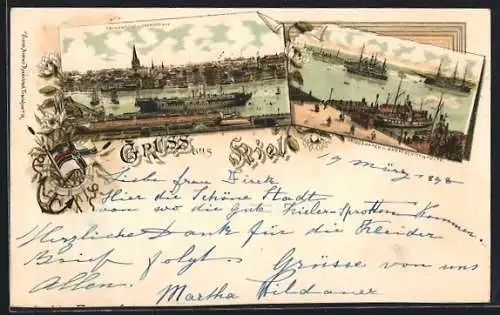 Gruss aus Kiel.
9 März 1898
Liebe frau Direk.
Hier die Schöne Stadt
von wo die gute Kieler-Sprotten kommen.
Herzlichen Dank für die Kleider
Brief folgt. Grüsse von uns
Allen.
Martha Hildauer